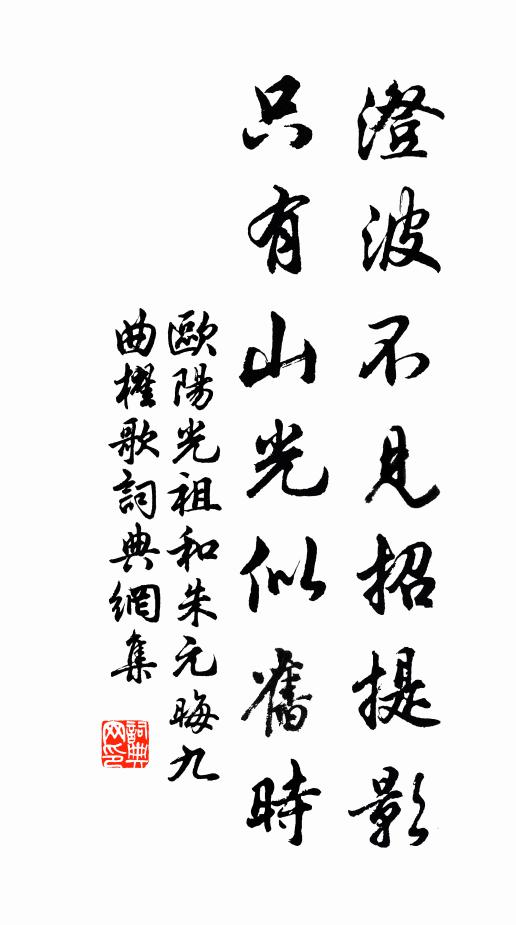 澄波不見招提影
只有山光似舊時
歐陽光祖和朱元晦九
曲櫂歌詞典網集
詞典網印